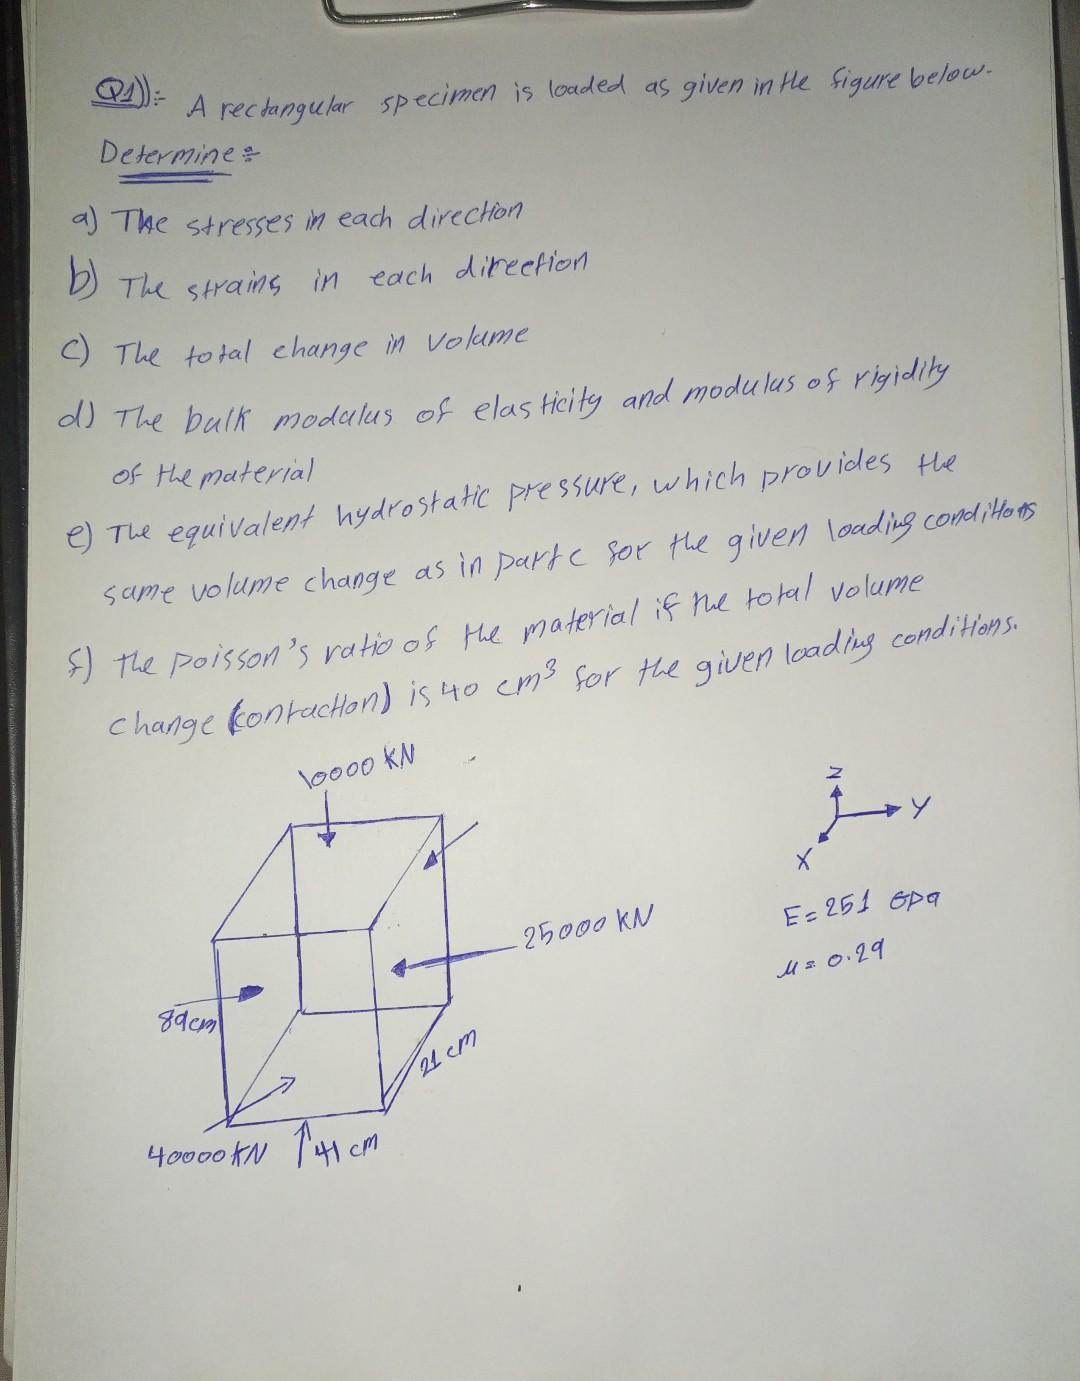 Q1)):- A rectangular specimen is loaded as given in the figure below.
Determine:
a) The stresses in each direction
b) The strains in each direction
c) The total change in volume
d) The bulk modulus of elasticity and modulus of rigidity
of the material
e) The equivalent hydrostatic pressure, which provides the
same volume change as in part c for the given loading conditions
f) the poisson's ratio of the material if the total volume
change (contraction) is 40 cm³ for the given loading conditions.
10000 KN
Z
Y
X
25000 KN
E= 251 GPa
μ= 0.29
89cm
21 cm
40000 KN
41 cm